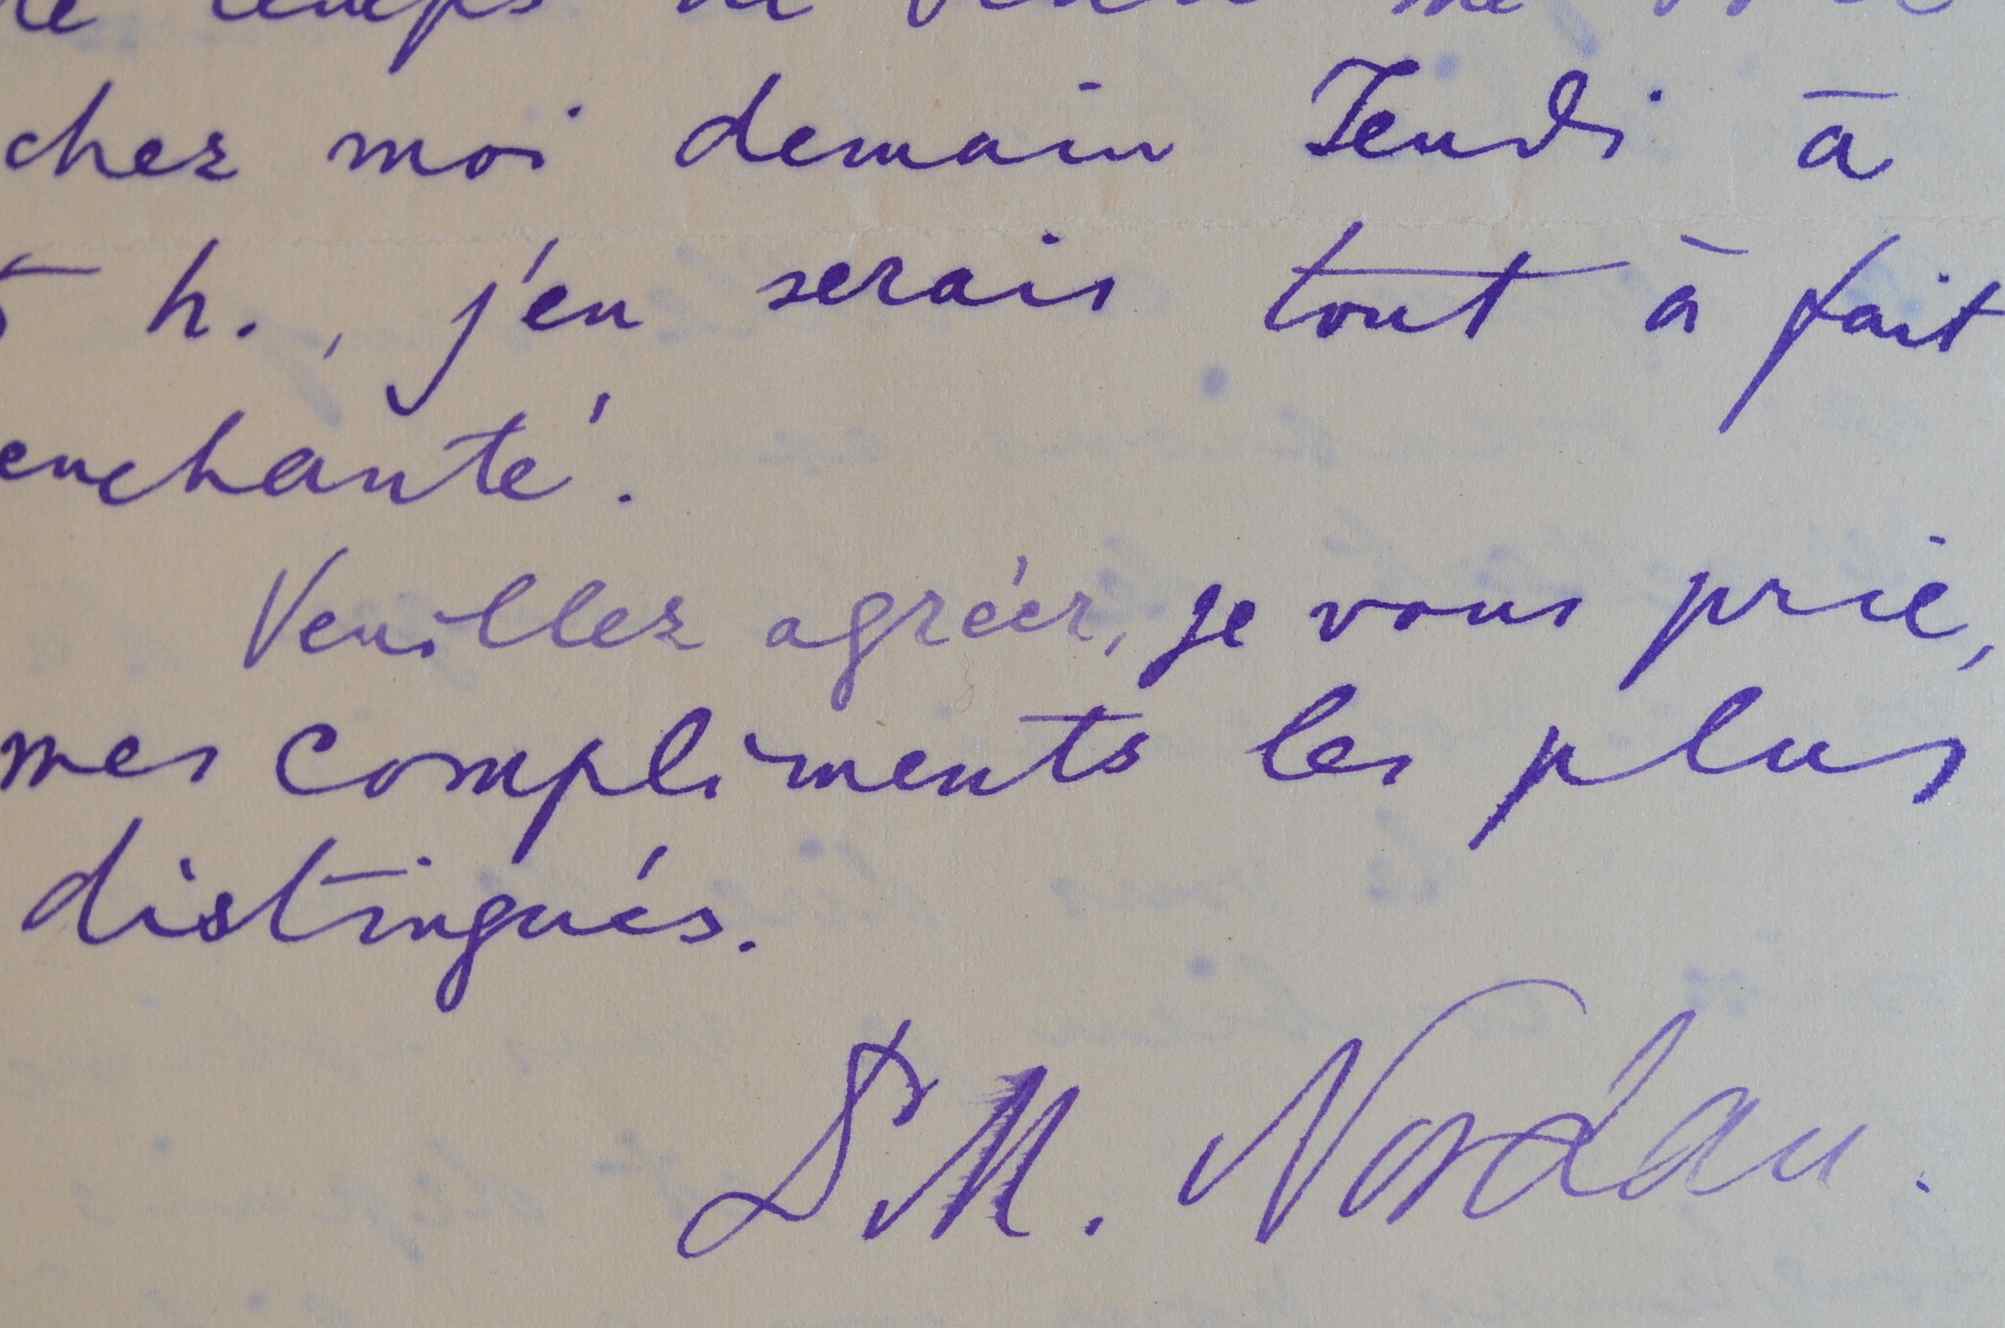 le temps de venir me voir
chez moi demain Jeudi à
5 h., j'en serais tout à fait
enchanté.
Veuillez agréer, je vous prie,
mes compliments les plus
distingués.
Dr M. Nordau.